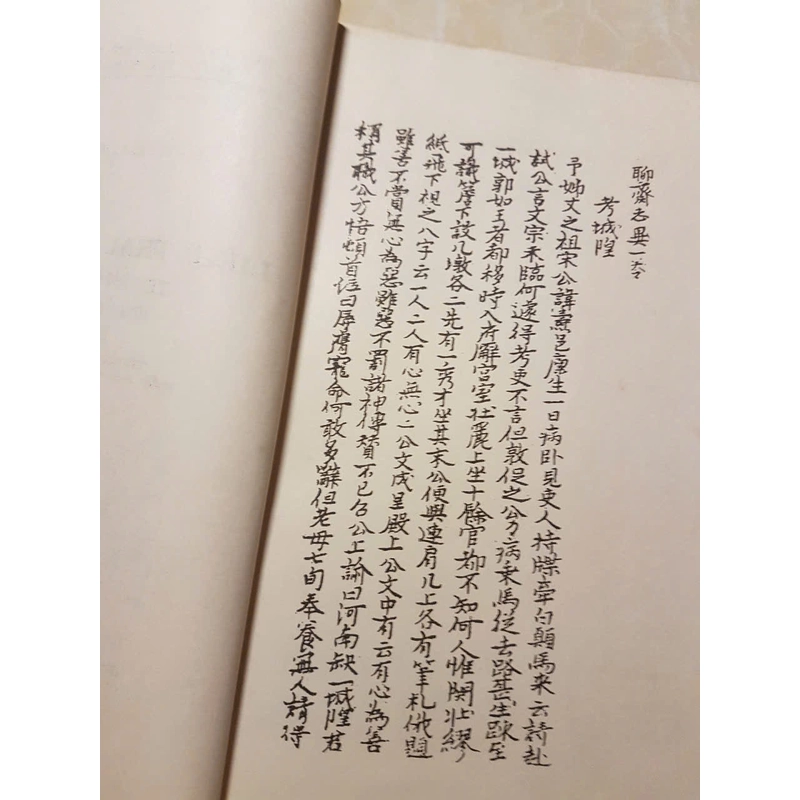 聊齋志異一卷
考城隍
予姊丈之祖宋公諱燾邑廩生一日病卧見吏人持牒牽白顛馬来云請赴
試公言文宗未臨何遽得考吏不言但敦促之公力病乘馬從去路甚生踈至
一城郭如王者都移時入府廨宮室壯麗上坐十餘官都不知何人惟関壮繆
可識簷下設几墩各二先有一秀才坐其末公便與連肩几上各有筆札俄題
紙飛下視之八字云一人二人有心無心二公文成呈殿上公文中有云有心為善
雖善不賞無心為惡雖惡不罰諸神傳贊不已召公上諭曰河南缺一城隍君
稱其職公方悟頓首泣曰辱膺寵命何敢多辭但老母七旬奉養無人請得